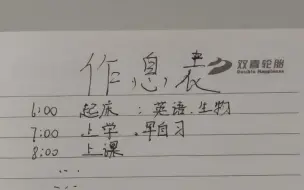 作息表
双喜轮胎
Double Happiness
6:00 起床：英语.生物
7:00 上学.早自习
8:00 上课
...
...